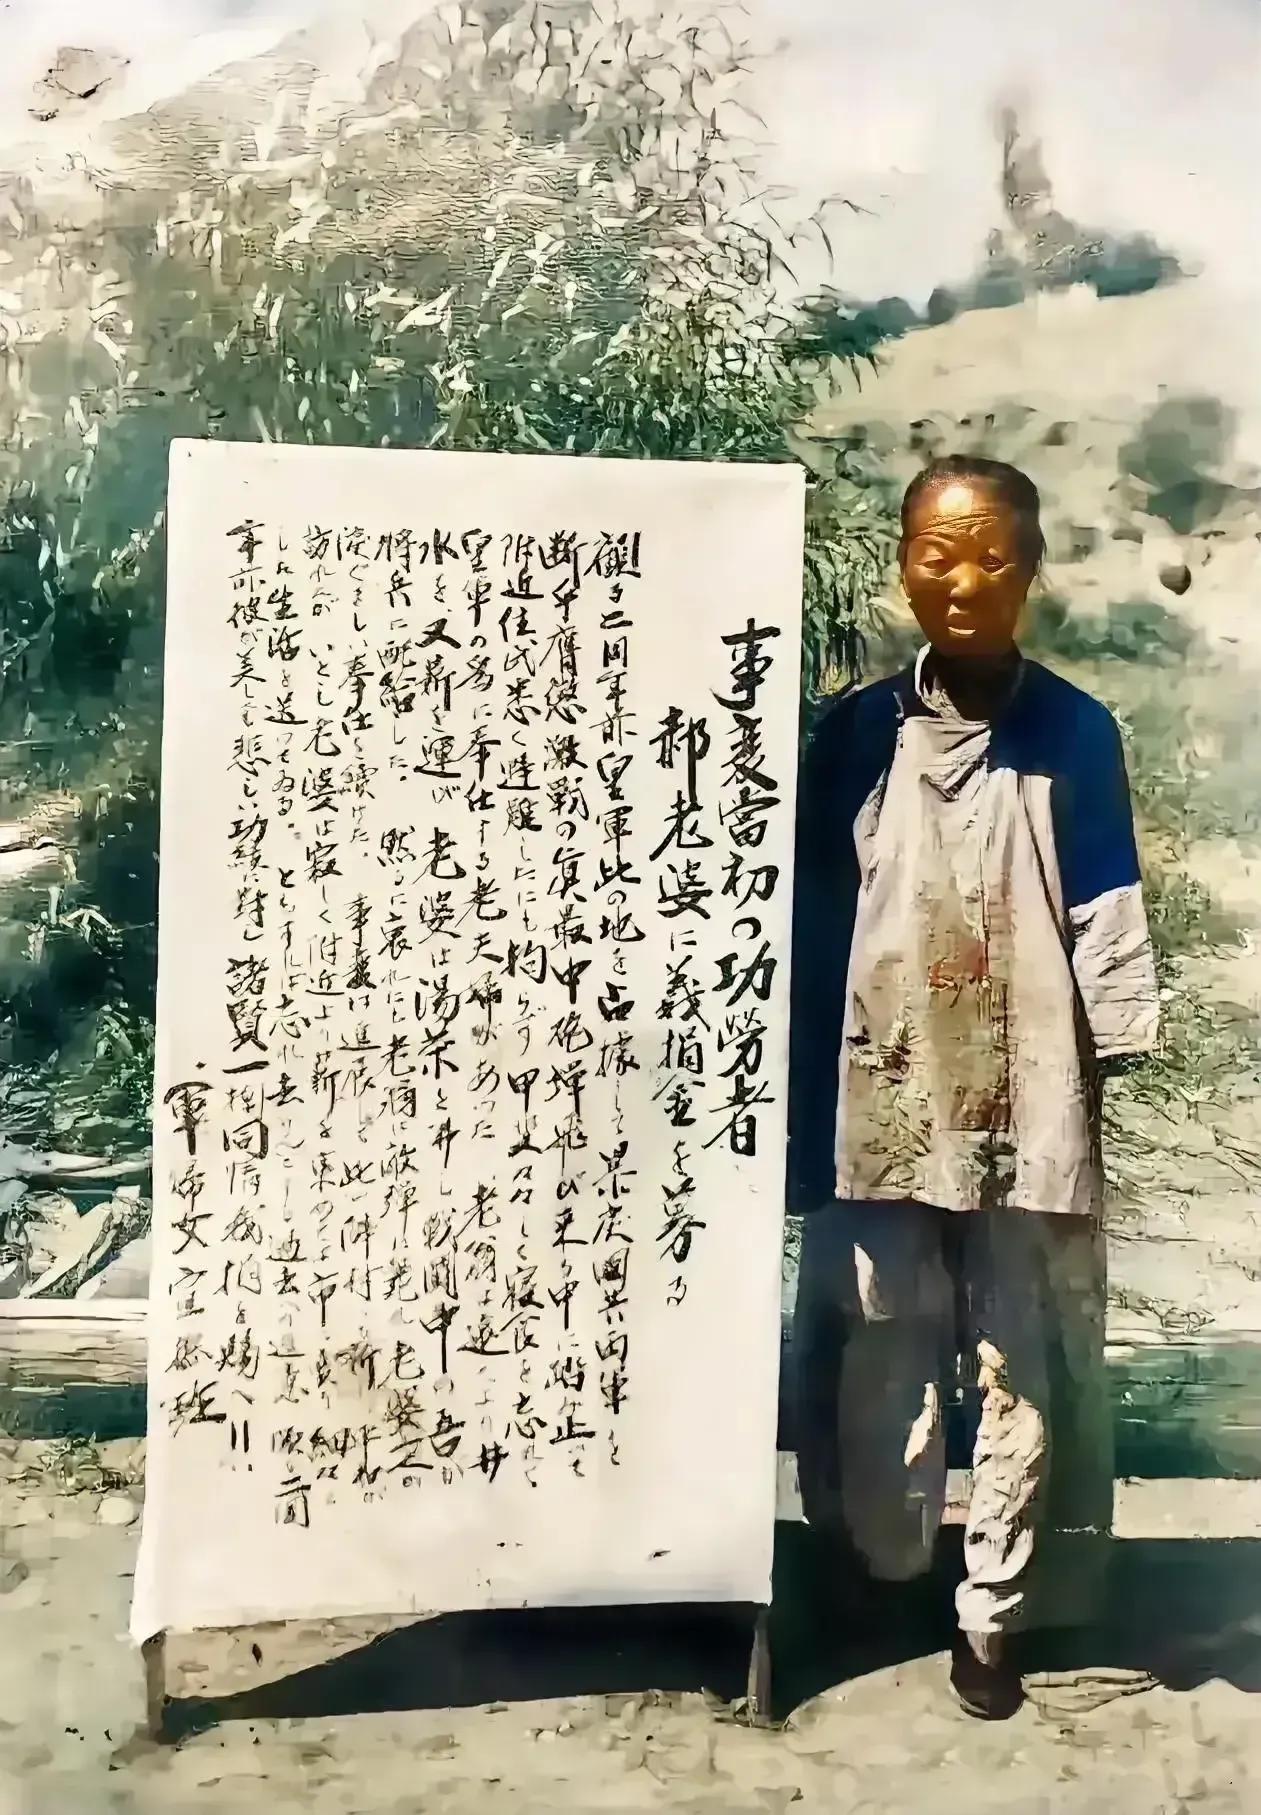 事変當初の功勞者
郝老婆に義捐金を募る
顧る二囘年前皇軍此の地を占據して果炭國共両軍を
断乎膺懲激戰の眞最中砲弾飛び来る中に踏み止って
附近住民悉く避難したにも拘らず甲斐々々しく寝食を忘れて
皇軍の為に奉仕する老夫婦があった 老爺は遠くより井
水を、又薪を運び 老婆は湯茶を井し戰闘中の吾が
将兵に配給した、 黙るに哀れにも老爺は敵弾に斃れ老婆又
涙ぐましい奉仕を續けた、 事変は進展して此の
訪れたが いとし老婆は寂しく附近より薪を求めては市に
した生活を送ってゐる、 ともすれば忘れ去られんとし過去の
年前彼が美しくも悲しい功績に對し諸賢一掬同情義捐を賜へ!!
軍 婦女宣撫班